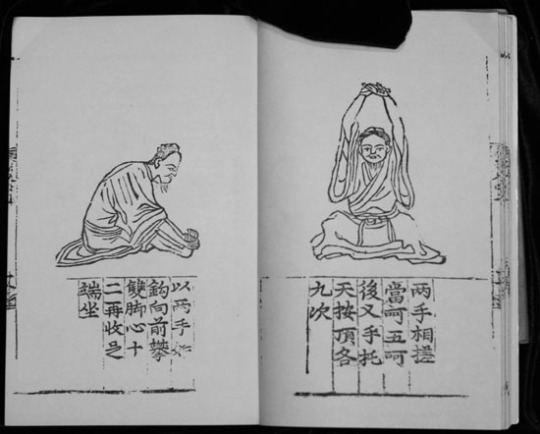 两手相搓
當呵五呵
後叉手托
天按頂各
九次
以两手
鈎向前攀
雙脚心十
二再收足
端坐